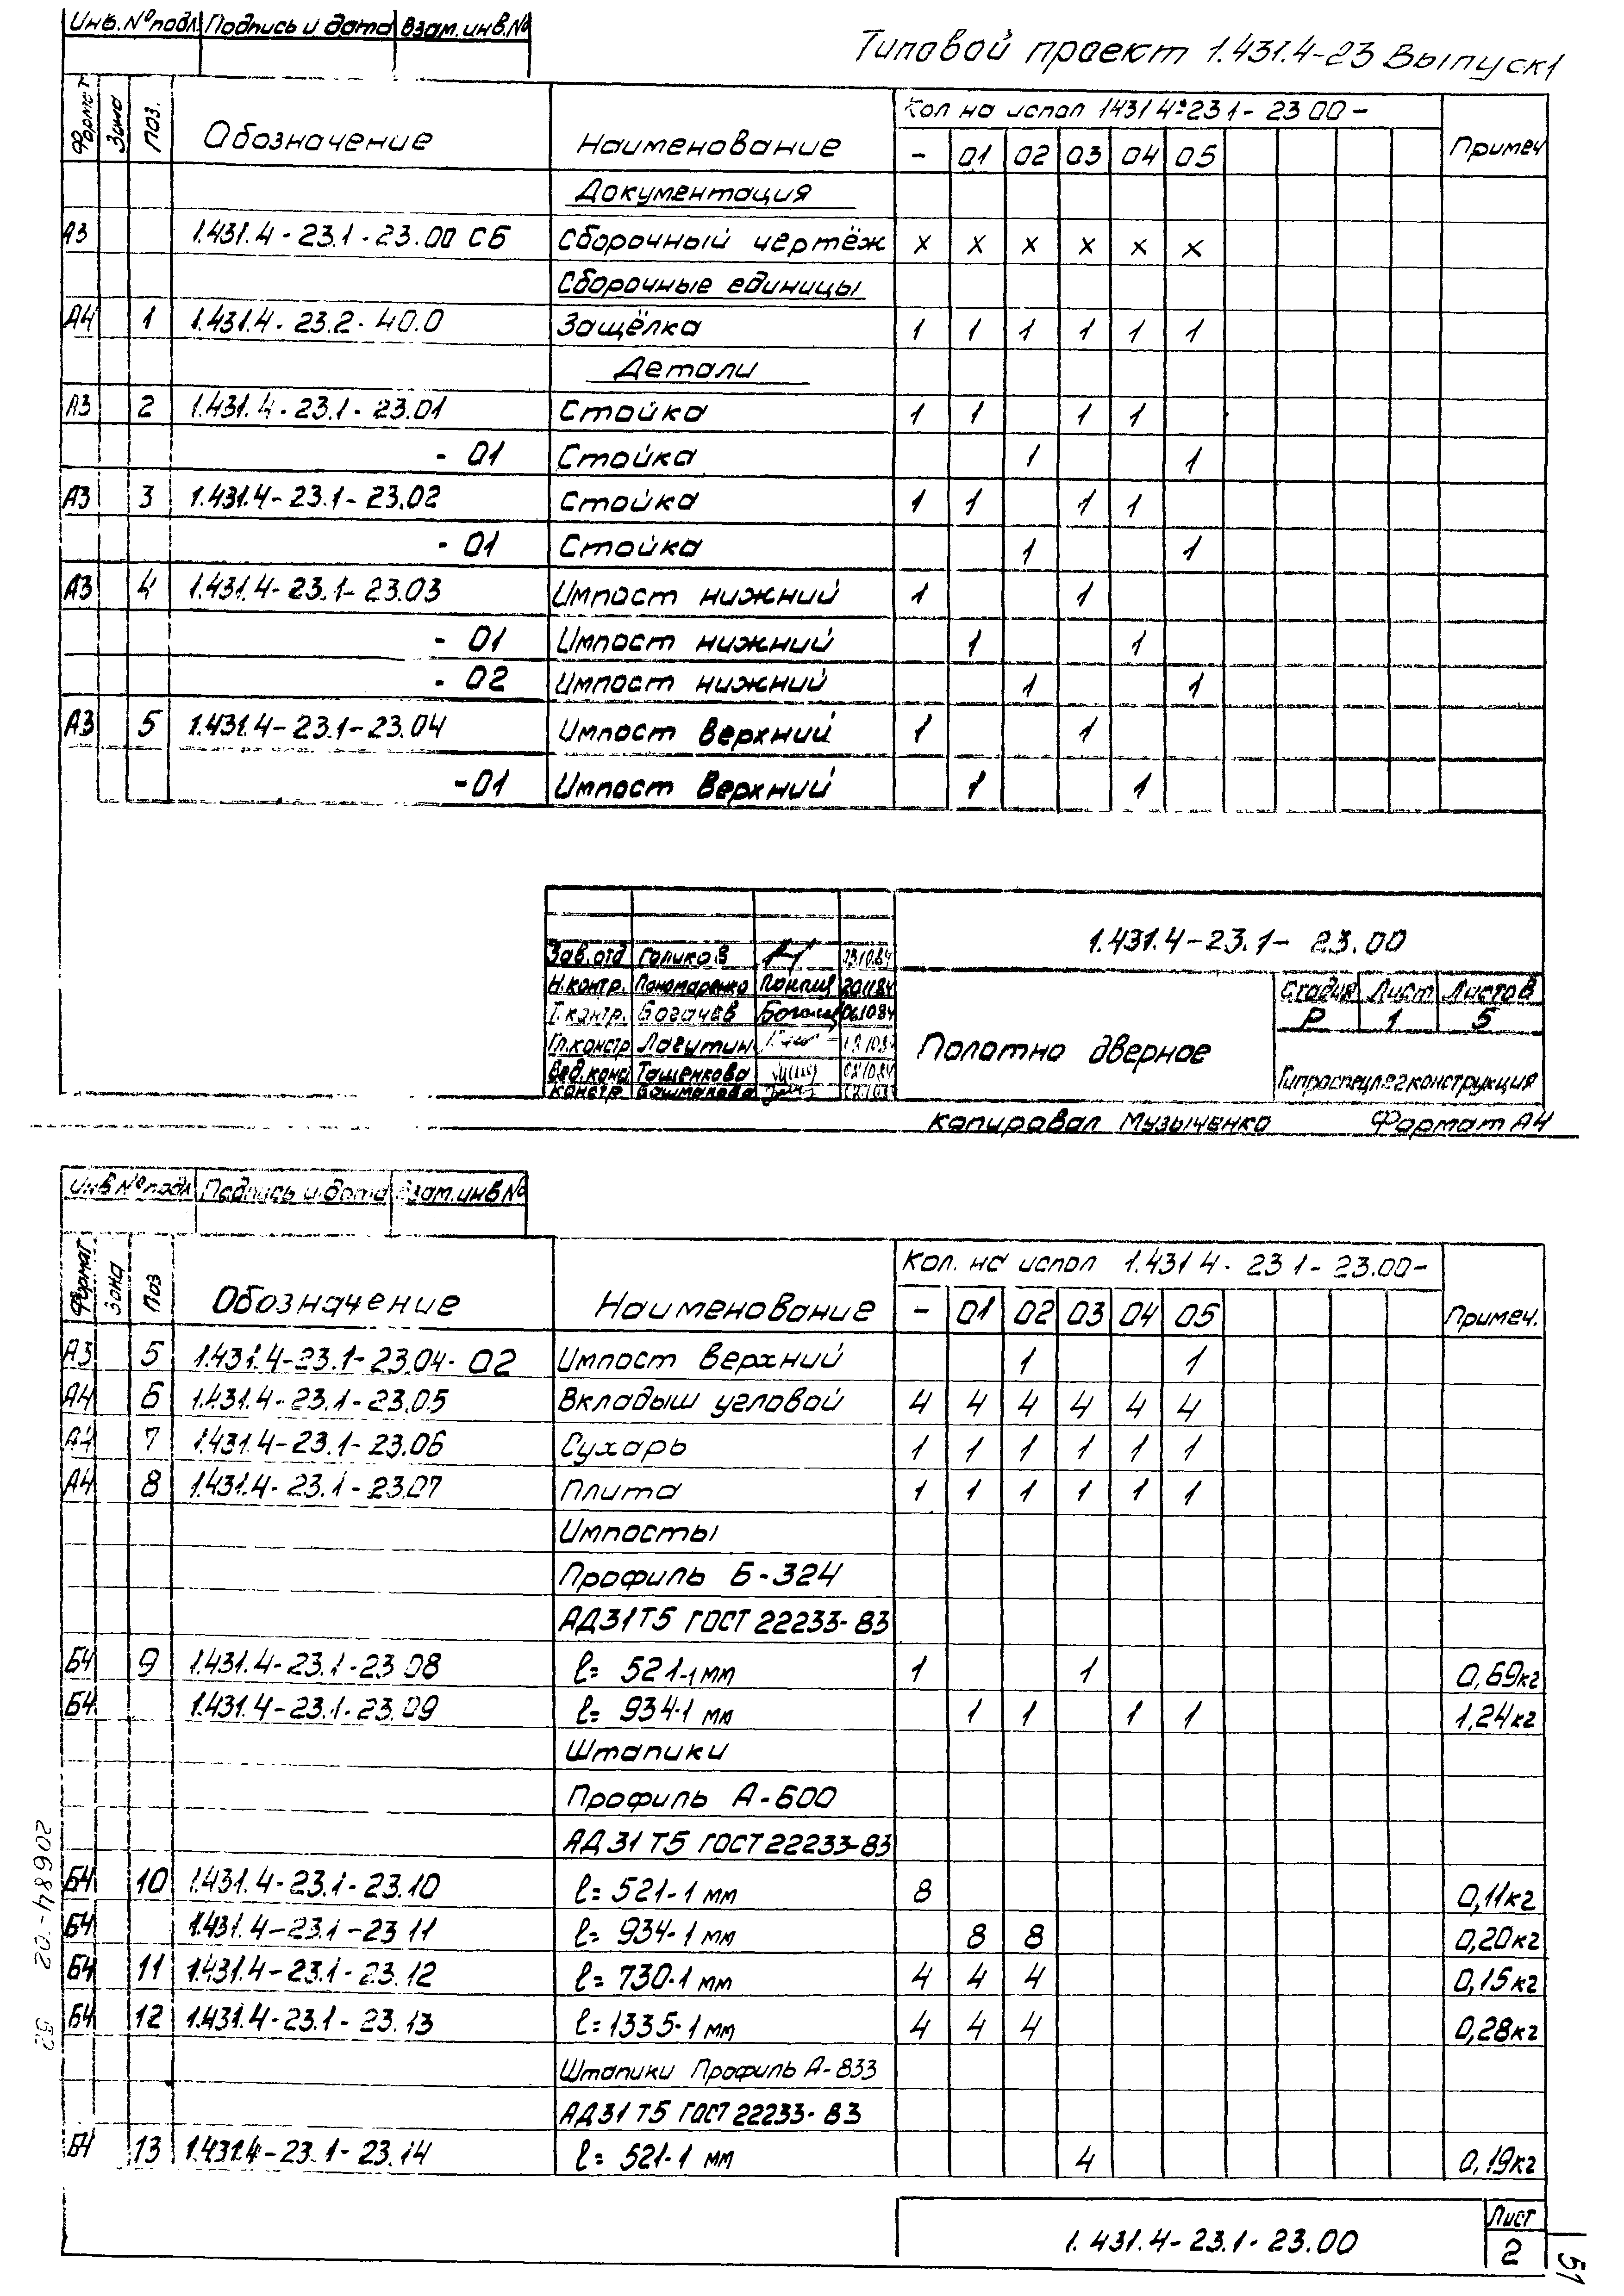 Инв.№подл. Подпись и дата Взам.инв.№
Типовой проект 1.431.4-23 Выпуск1
Формат Зона Поз. Обозначение Наименование Кол на испол 1431 4-23 1- 23 00 - Примеч
- 01 02 03 04 05
Документация
А3 1.431.4-23.1-23.00 СБ Сборочный чертёж х х х х х х
Сборочные единицы
А4 1 1.431.4-23.2-40.0 Защёлка 1 1 1 1 1 1
Детали
А3 2 1.431.4-23.1-23.01 Стойка 1 1 1 1
- 01 Стойка 1 1
А3 3 1.431.4-23.1-23.02 Стойка 1 1 1 1
- 01 Стойка 1 1
А3 4 1.431.4-23.1-23.03 Импост нижний 1 1
- 01 Импост нижний 1 1
- 02 Импост нижний 1 1
А3 5 1.431.4-23.1-23.04 Импост верхний 1 1
-01 Импост верхний 1 1
1.431.4-23.1- 23.00
Зав.отд Голиков
Н.контр. Пономаренко 201184
Т.контр. Богачёв 061084
Гл.констр Лагутин
Вед.конс Ташенкова
констр Башмакова
Полотно дверное
Стадия Лист Листов
Р 1 5
Гипроспецлегконструкция
Копировал Музыченко Формат А4
Инв №подл Подпись и дата Взам.инв №
Формат Зона Поз Обозначение Наименование Кол. на испол 1.431 4-23 1-23.00- Примеч.
- 01 02 03 04 05
А3 5 1.431.4-23.1-23.04-02 Импост верхний 1 1
А4 6 1.431.4-23.1-23.05 Вкладыш угловой 4 4 4 4 4 4
А4 7 1.431.4-23.1-23.06 Сухарь 1 1 1 1 1 1
А4 8 1.431.4-23.1-23.07 Плита 1 1 1 1 1 1
Импосты
Профиль Б-324
АД31Т5 ГОСТ 22233-83
Б4 9 1.431.4-23.1-23 08 ℓ= 521-1 мм 1 1 0,69кг
Б4 1.431.4-23.1-23.09 ℓ= 934-1 мм 1 1 1 1 1,24кг
Штапики
Профиль А-600
АД31 Т5 ГОСТ 22233-83
Б4 10 1.431.4-23.1-23.10 ℓ= 521-1 мм 8 0,11кг
Б4 1.431.4-23.1-23 11 ℓ= 934-1 мм 8 8 0,20кг
Б4 11 1.431.4-23.1-23.12 ℓ= 730-1 мм 4 4 4 0,15кг
Б4 12 1.431.4-23.1-23.13 ℓ=1335-1 мм 4 4 4 0,28кг
Штапики Профиль А-833
АД31 Т5 ГОСТ 22233-83
Б4 13 1.431.4-23.1-23.14 ℓ= 521-1 мм 4 0,19кг
1.431.4-23.1-23.00
Лист
2
51